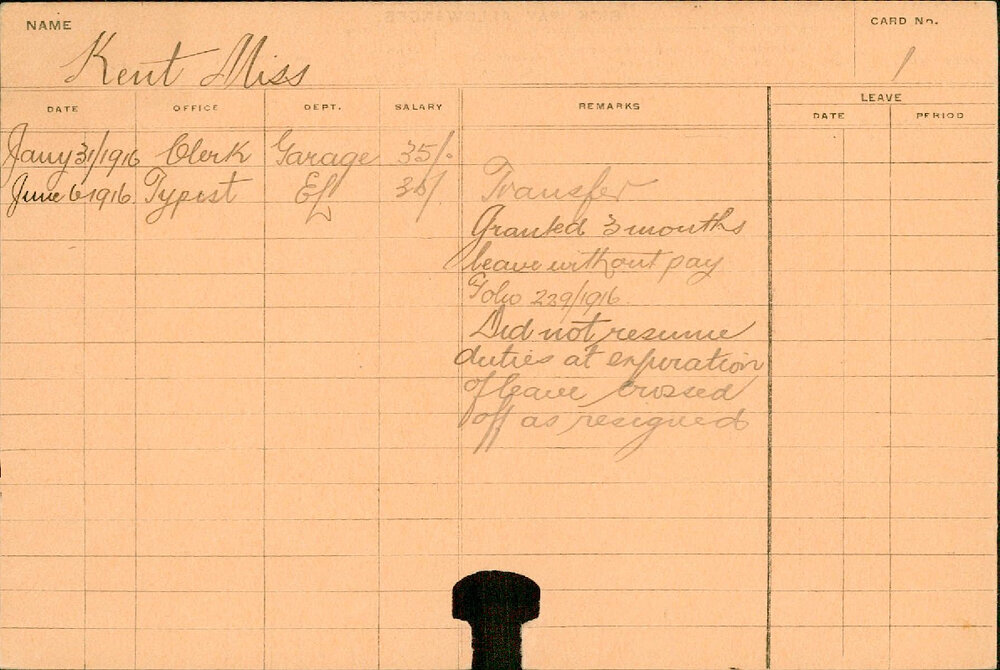 NAME
CARD No.
Kent Miss
1
DATE OFFICE DEPT. SALARY REMARKS LEAVE
DATE PERIOD
Jany 31/1916 Clerk Garage 35/-
June 6 1916 Typist Transfer
Granted 3 months
leave without pay
Folio 229/1916
Did not resume
duties at expiration
of leave crossed
off as resigned